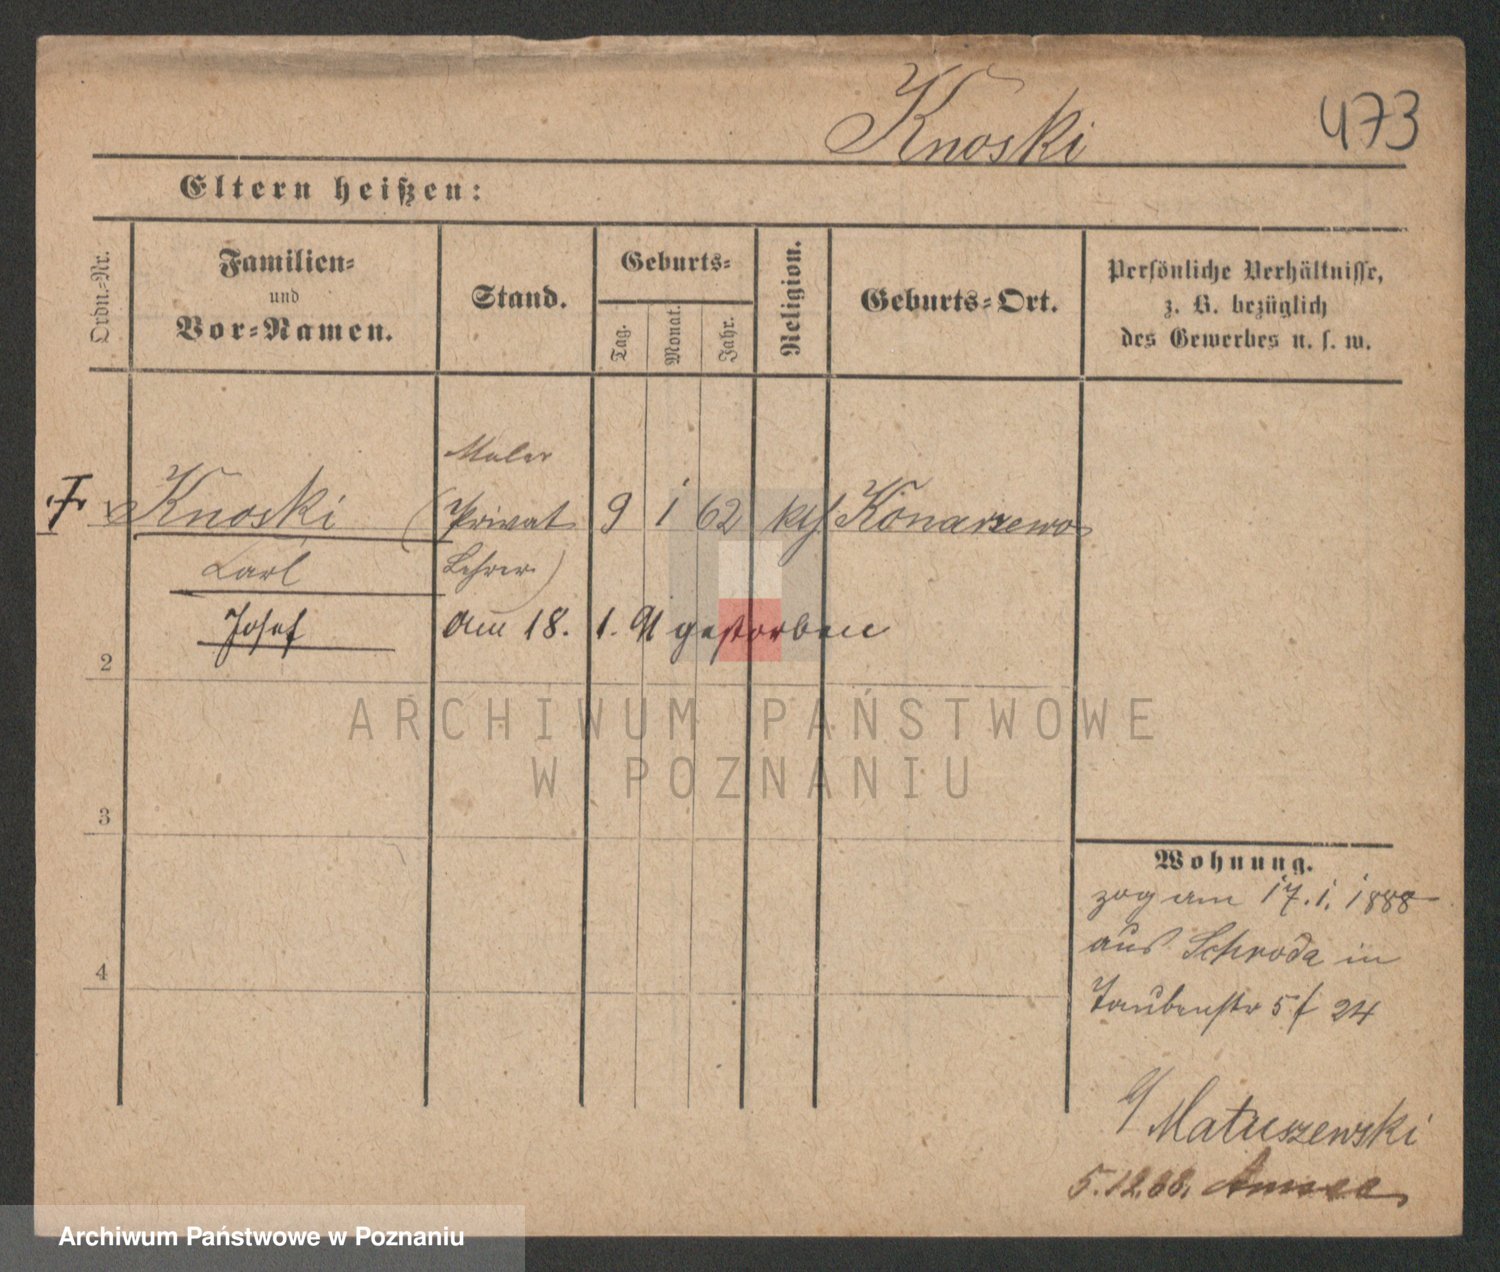 Knoski
473
Eltern heißen:
Ordn.-Nr.
Familien-
und
Vor-Namen.
Stand.
Geburts-
Tag.
Monat.
Jahr.
Religion.
Geburts-Ort.
Persönliche Verhältnisse,
z. B. bezüglich
des Gewerbes u. s. w.
Maler
Knoski (Privat 9 1 62 kth Konarzewo
Carl Lehrer)
Josef Am 18. 1. 91 gestorben
2
3
4
ARCHIWUM PAŃSTWOWE
W POZNANIU
Wohnung.
zog am 17.1.1888
aus Schroda in
Taubenstr 5 f 24
Matuszewski
5.12.88.
Archiwum Państwowe w Poznaniu